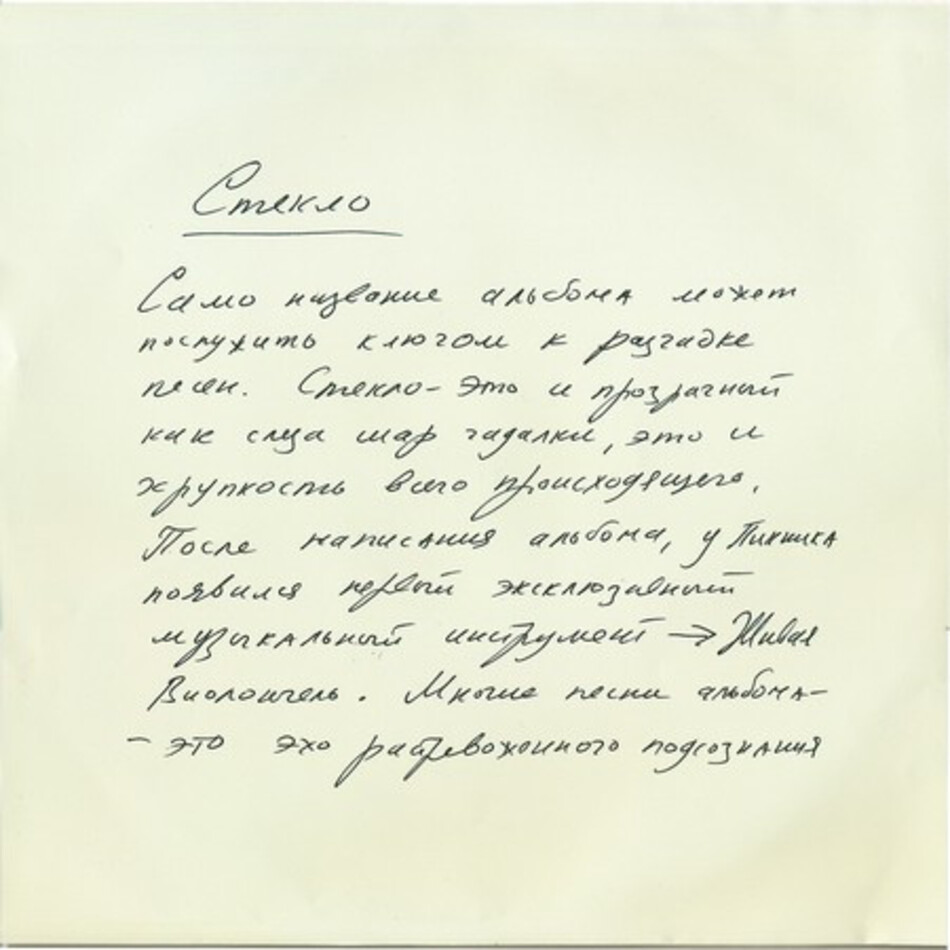 Стекло
Само название альбома может
послужить ключом к разгадке
песен. Стекло - это и прозрачный
как слеза шар гадалки, это и
хрупкость всего происходящего.
После написания альбома, у Пикника
появился первый эксклюзивный
музыкальный инструмент → Живая
Виолончель. Многие песни альбома -
- это эхо растревоженного подсознания